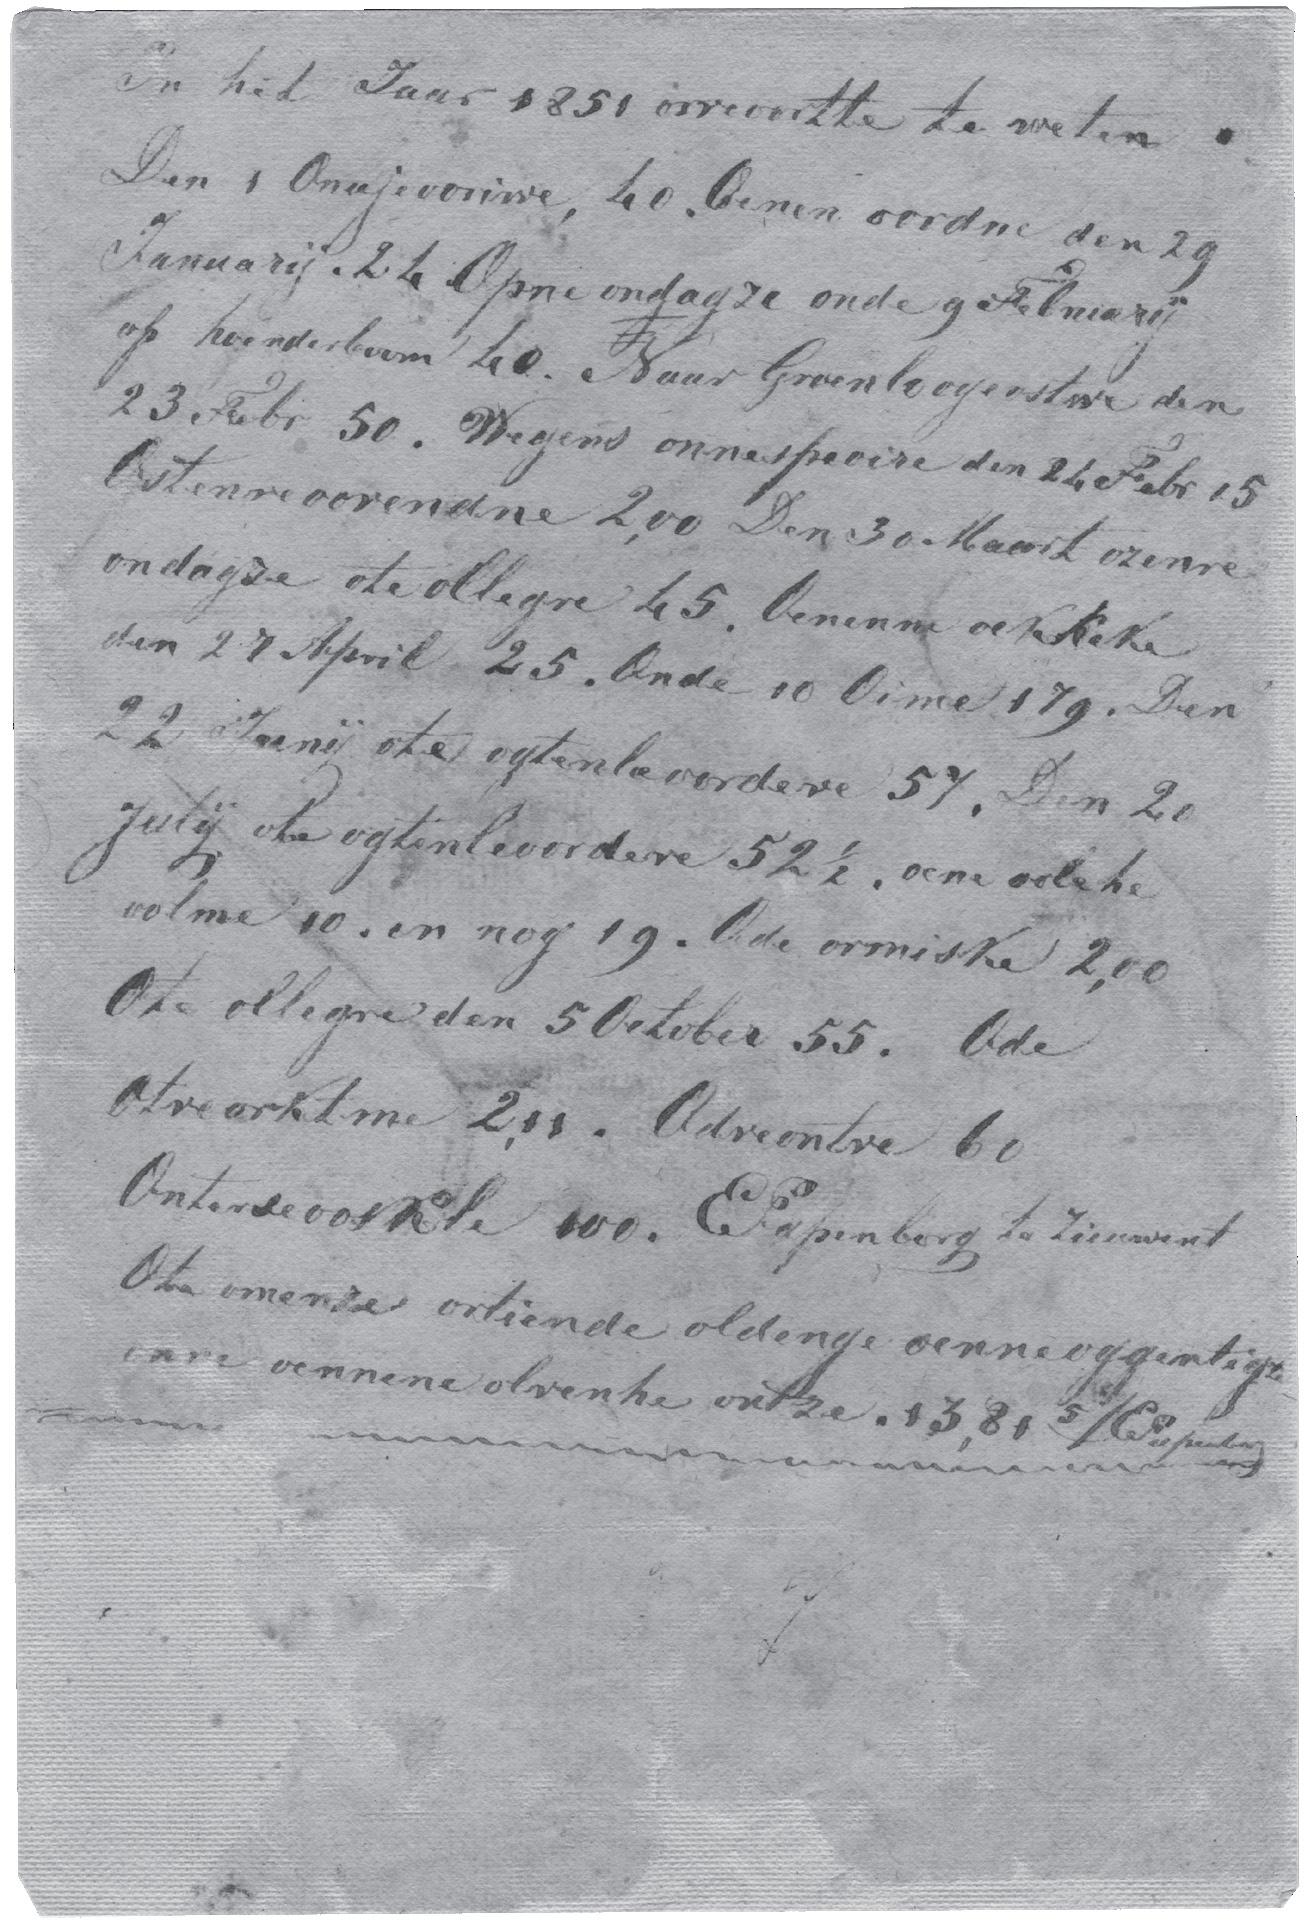 In het Jaar 1851 orreoortte te weten .
Den 1 Onajevooriwe, 40. Oenen oordne den 29
Januarij. 24 Opne ondagze onde 9 Februarij
op hoenderboom 40. Naar Groenloogerstwe den
23 Febr 50. Wegens onnespeoize den 24 Febr 15
Ostenreoorendne 2,00 Den 30 Maart ozenre
ondagze ote ollegre 45. Oenenne oekkeke
den 27 April 25. Onde 10 Oime 179. Den
22 Junij ote ogtenleoordeve 57. Den 20
Julij ote ogtenleoordeve 52 1/2. oene oolehe
oolme 10. en nog 19. Ode ormiske 2,00
Ote ollegre den 5 October 55. Ode
Otreorktme 2,11. Odreontre 60
100. EPapenborg te Zieuwent
Ote omenze ortiende oldenge oenneoggentigze
onre oennene olvenhe ortze. 13,81 5/ EPapenborg